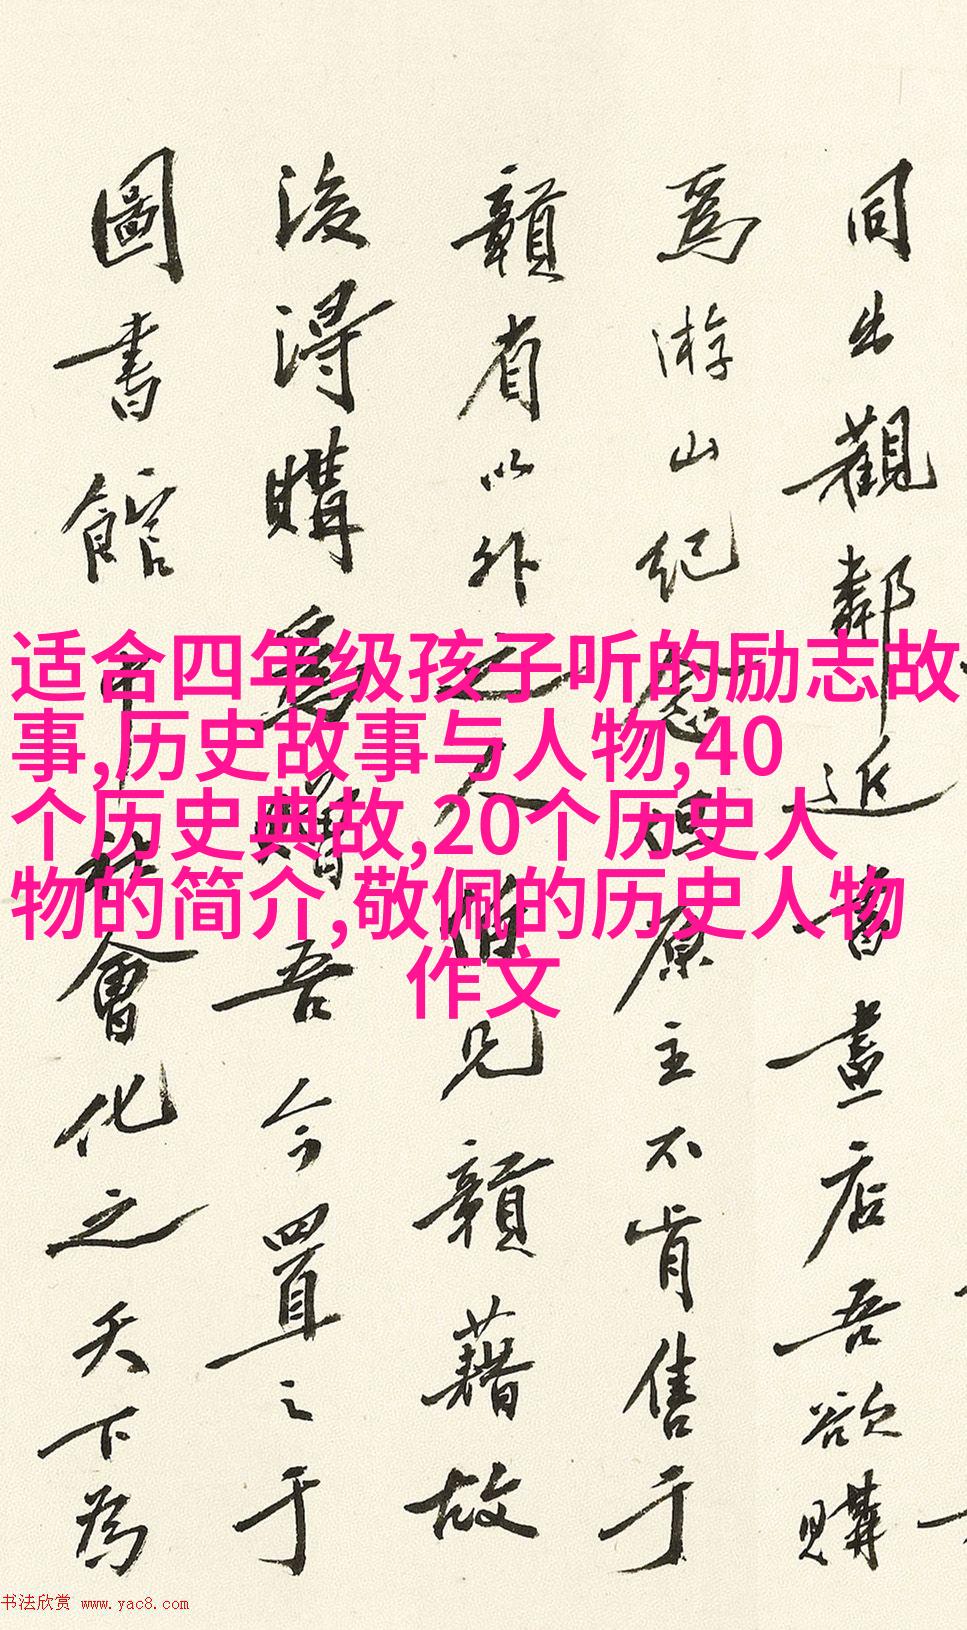 适合四年级孩子听的励志故
事,历史故事与人物,40
个历史典故,20个历史人
物的简介,敬佩的历史人物
作文
同出觀鄰近書畫店吾欲購
爲游山紀念原主不肯售于
贛省以外之人見贛藉故
後得購爲贈吾今置之于
圖書館中社會化之天下為
书法欣赏 www.yac8.com